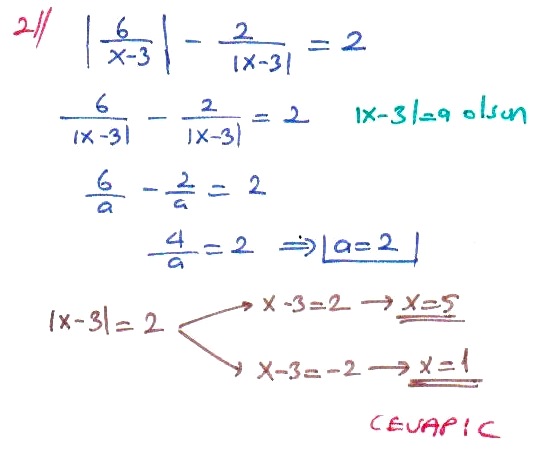 2// |6/(x-3)| - 2/|x-3| = 2
6/|x-3| - 2/|x-3| = 2 |x-3|=a olsun
6/a - 2/a = 2
4/a = 2 ⇒ a=2
|x-3|=2
x-3=2 → x=5
x-3=-2 → x=1
CEVAP IC